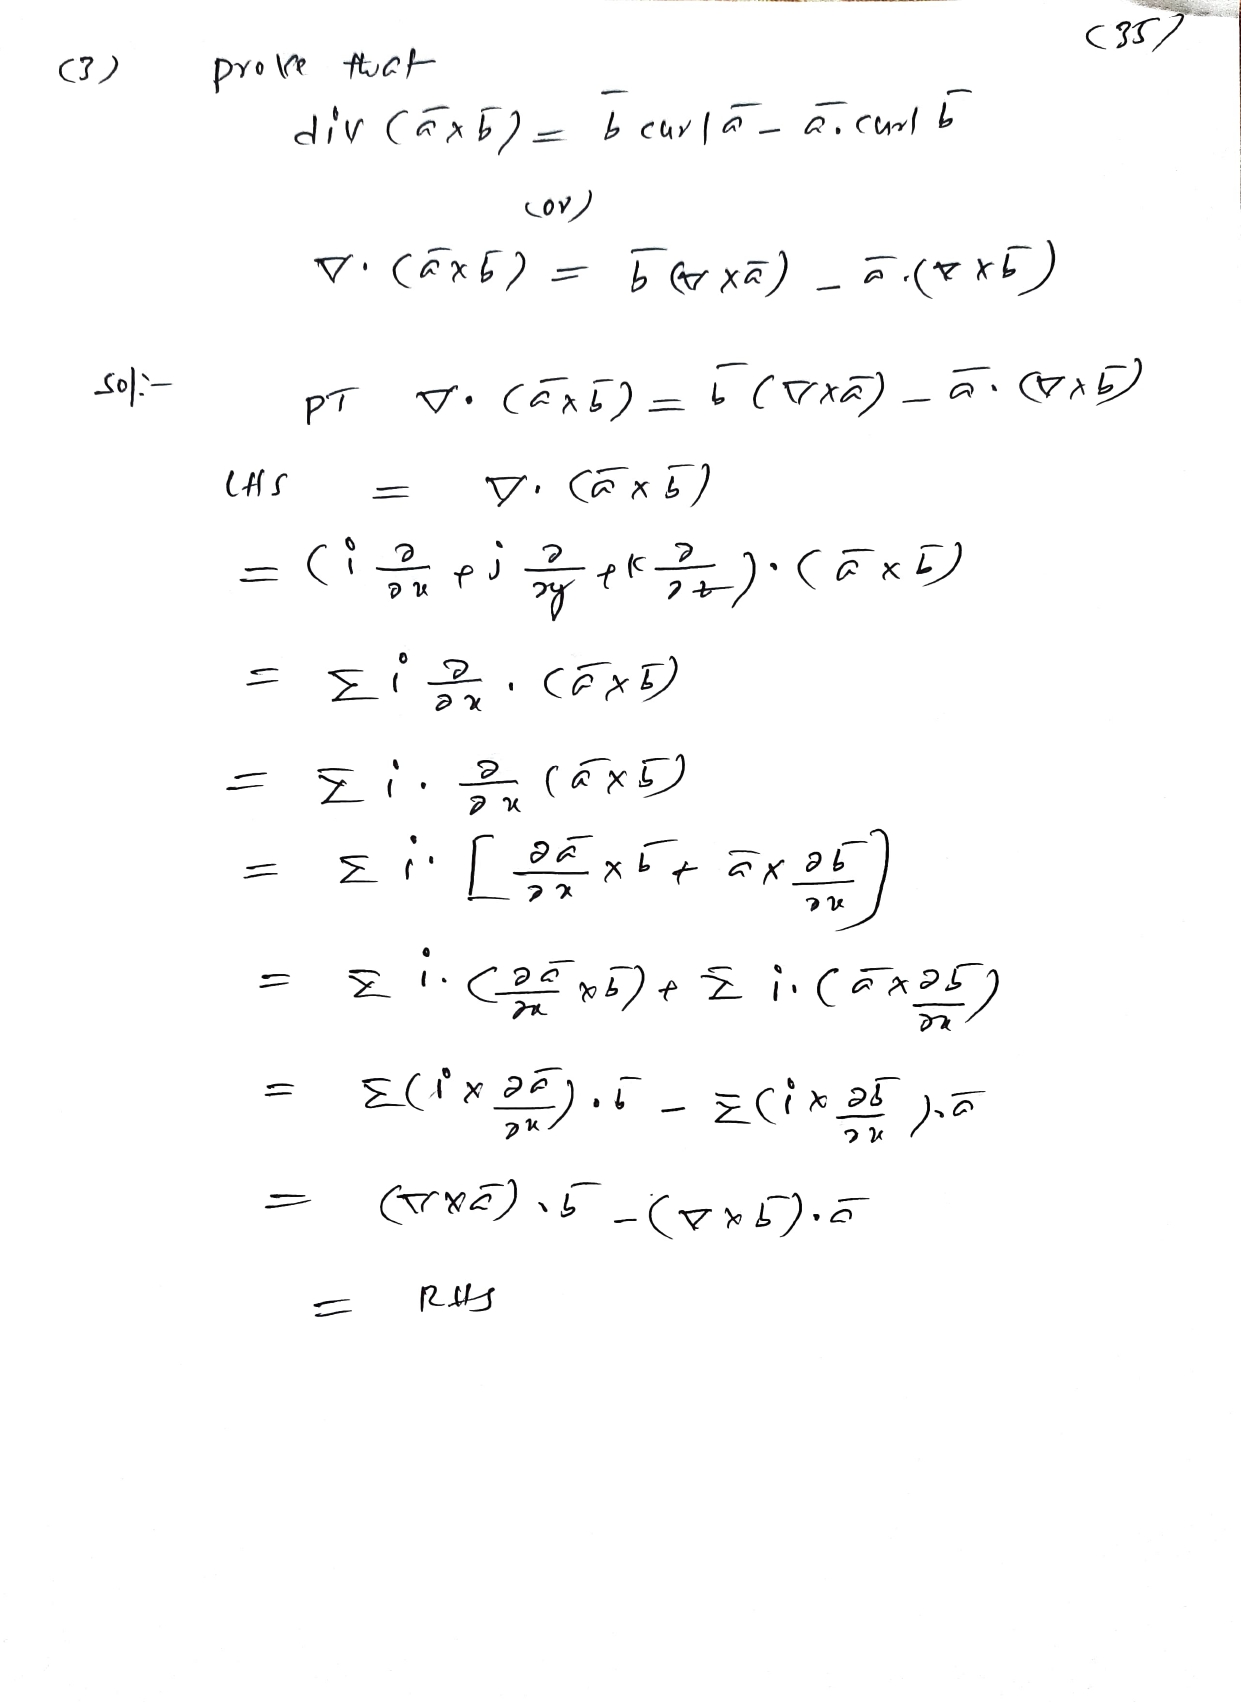 (35)
(3) prove that
div (a̅ × b̅) = b̅ curl a̅ − a̅. curl b̅
(or)
∇. (a̅ × b̅) = b̅ (∇ × a̅) − a̅.(∇ × b̅)
Sol:- PT ∇. (a̅ × b̅) = b̅ (∇ × a̅) − a̅. (∇ × b̅)
LHS = ∇. (a̅ × b̅)
= (i ∂/∂x + j ∂/∂y + k ∂/∂z). (a̅ × b̅)
= Σ i ∂/∂x . (a̅ × b̅)
= Σ i. ∂/∂x (a̅ × b̅)
= Σ i. [∂a̅/∂x × b̅ + a̅ × ∂b̅/∂x]
= Σ i. (∂a̅/∂x × b̅) + Σ i. (a̅ × ∂b̅/∂x)
= Σ(i × ∂a̅/∂x). b̅ − Σ(i × ∂b̅/∂x). a̅
= (∇ × a̅). b̅ − (∇ × b̅). a̅
= RHS